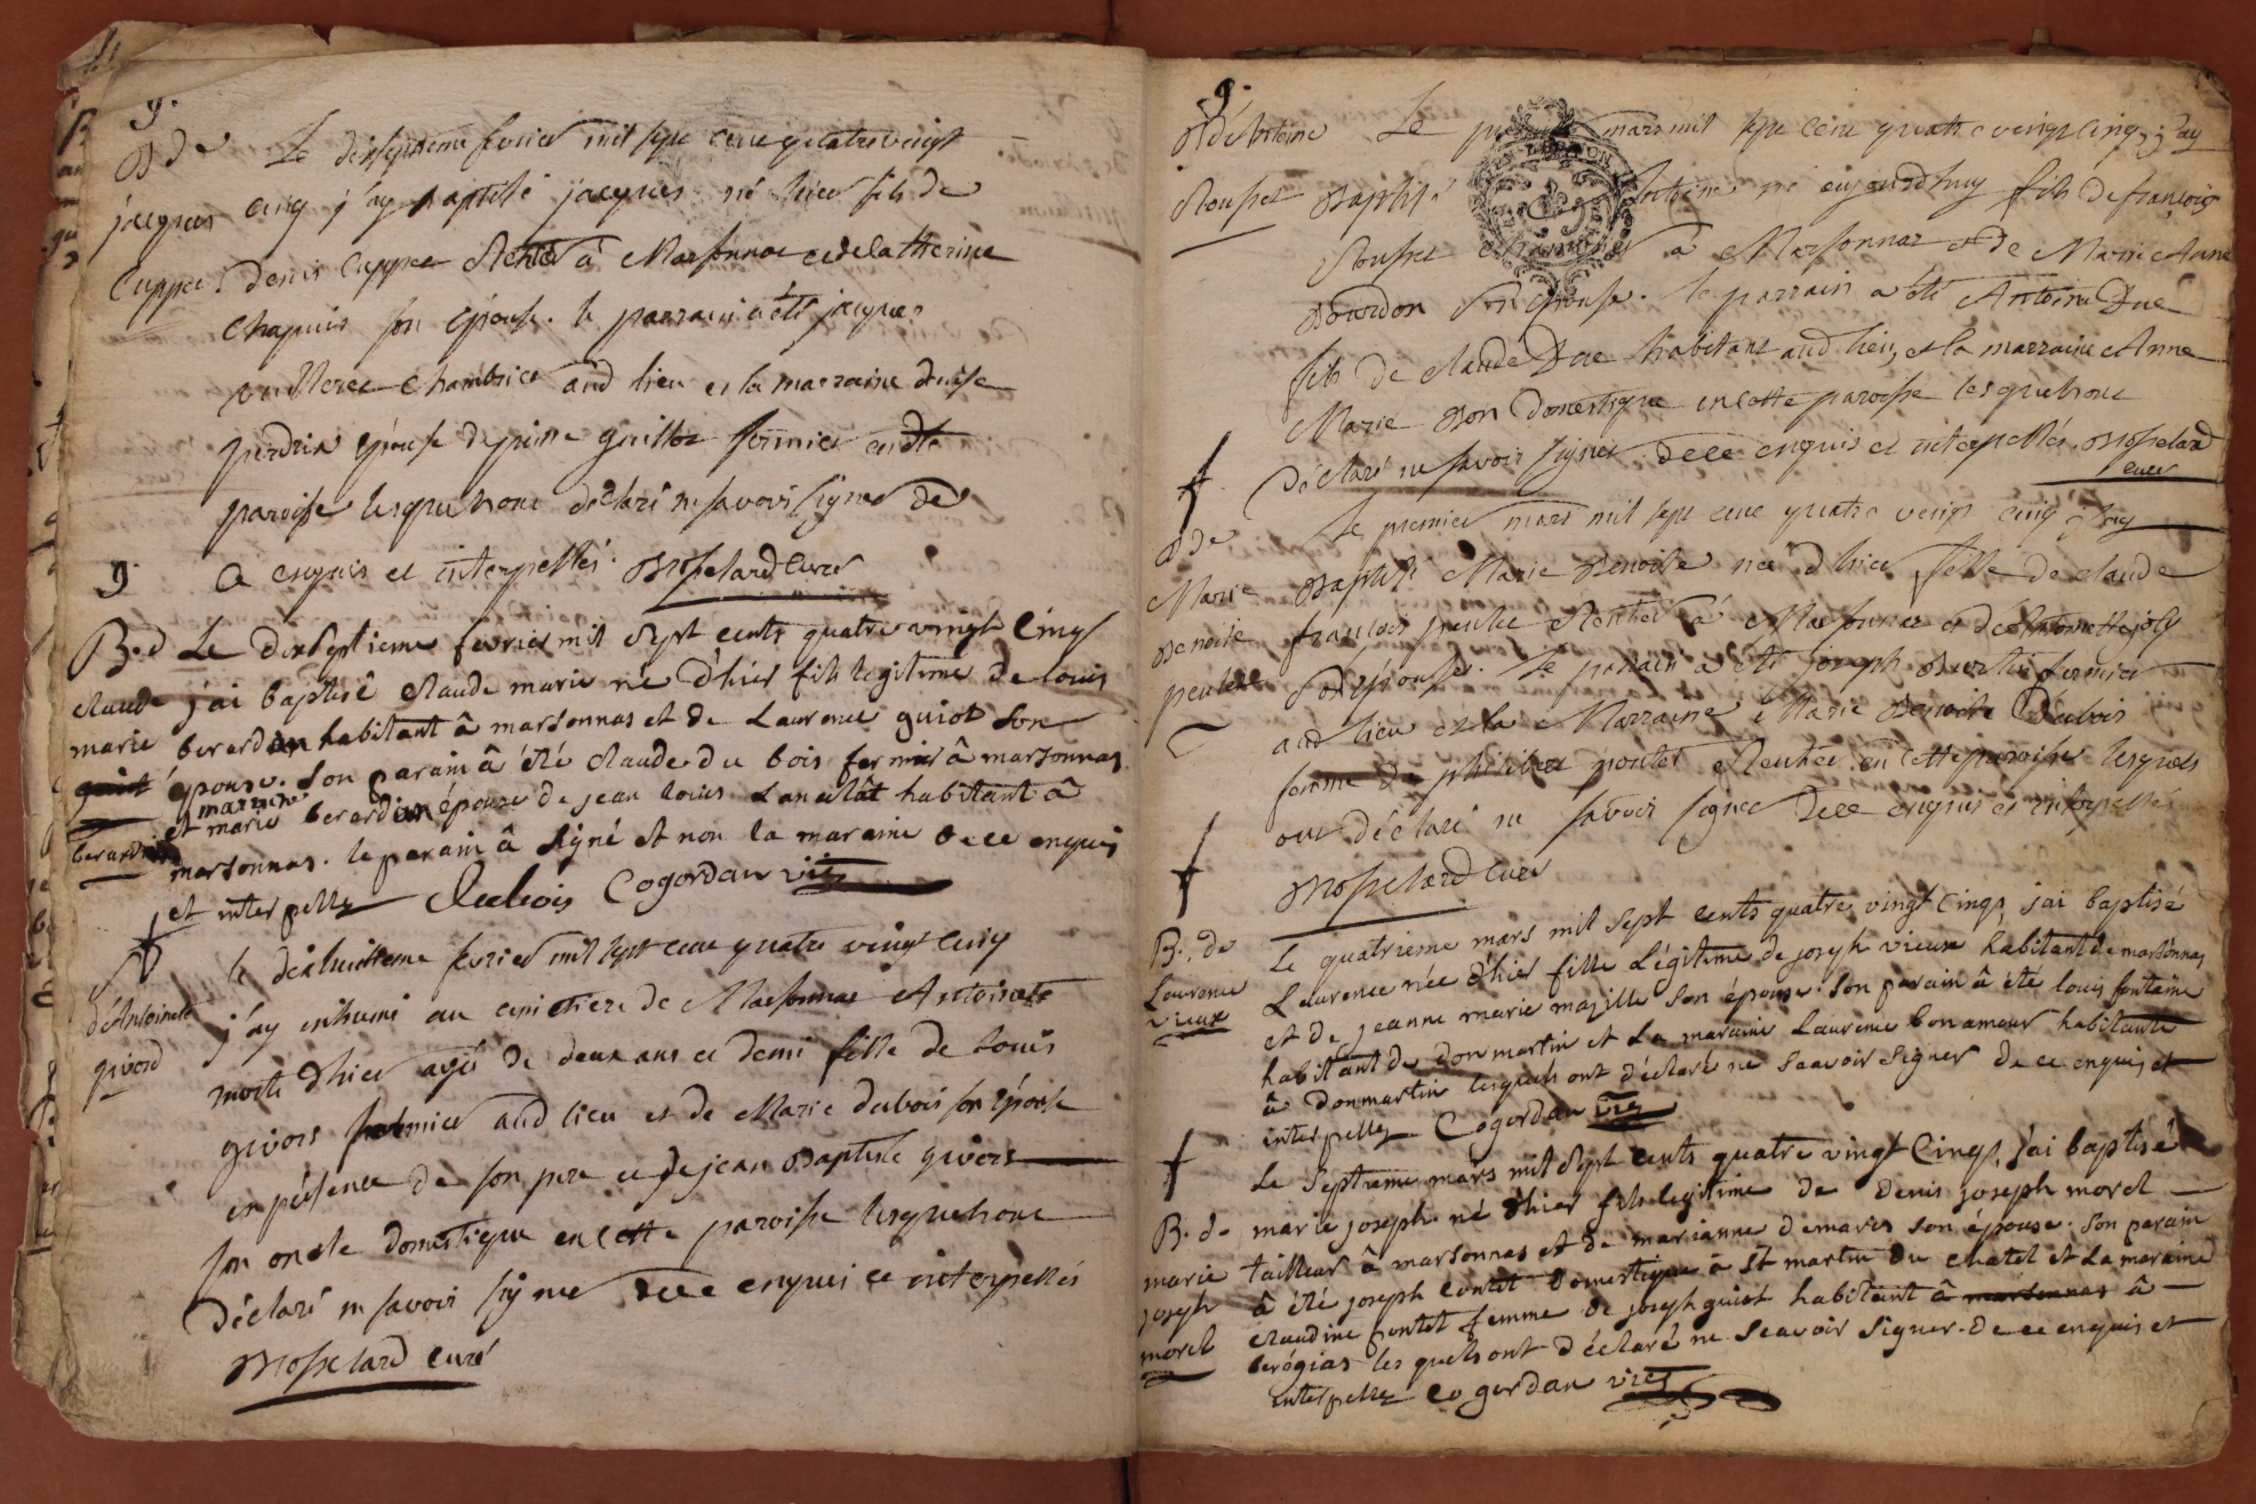 g.
B de
jacques
cuppee
Le dixseptieme fevrier mil sept cent quatrevingt
cinq j'ay baptisé jacques né hier fils de
denis cuppee Rentier à Marsonnas et de Catherine
Chapuis son epouse. le parrain a été jacques
chambrier aud lieu et la marraine denise
perdrix epouse de pierre guillot fermier en dte
paroisse lesquels ont déclaré ne savoir signer de
ce enquis et interpellés. Mosselard curé
g.
B. d
claude
marie
guiot
berardan
Le dixseptieme fevrier mil sept cents quatre vingt cinq
j'ai baptisé claude marie né d'hier fils legitime de louis
berardan habitant â marsonnas et de Laurence guiot son
épouse. son parain â été claude du bois fermier â marsonnas
et marraine marie berardan épouse de jean louis habitant â
marsonnas. le parain â signé et non la maraine de ce enquis
et interpellez Dubois Cogordan vic
†
S
d'Antoinette
givord
le dixhuitieme fevrier mil sept cent quatre vingt cinq
j'ay inhumé au cimetiere de Marsonnas Antoinette
morte d'hier agée de deux ans et demi fille de Louis
givors fermier aud lieu et de Marie dubois son épouse
en présence de son pere et de jean Baptiste givors
son oncle domestique en cette paroisse lesquels ont
déclaré ne savoir signer de ce enquis et interpellés
Mosselard curé
g.
B d'Antoine
Rousset
Le mars mil sept cent quatre vingt cinq j'ay
Baptisé Antoine né aujourdhuy fils de françois
Rousset à Marsonnas et de Marie Anne
Bourdon son epouse. le parrain a été Antoine Duc
fils de claude Duc habitant aud lieu, et la marraine Anne
Marie Bon domestique en cette paroisse lesquels ont
déclaré ne savoir signer. de ce enquis et interpellés. Mosselard
curé
†
B de
Marie
Benoite
peulet
Le premier mars mil sept cent quatre vingt cinq j'ay
Baptisé Marie Benoite née d'hier fille de claude
francois peulet Rentier à Marsonnas et d'Antoinette joly
son épouse. Le parrain a été joseph Burtin fermier
aud lieu et la Marraine Marie Benoite Dubois
femme de philibert poulet Rentier en cette paroisse lesquels
ont déclaré ne savoir signer de ce enquis et interpellés
Mosselard curé
†
B. de
Laurence
vieux
Le quatrieme mars mil sept cents quatre vingt cinq, j'ai baptisé
Laurence née d'hier fille Légitime de joseph vieux habitant de marsonnas
et de jeanne marie mazille son épouse. son parain â été louis fontaine
habitant de donmartin et La maraine Laurence bonamour habitante
â donmartin lesquels ont déclaré ne sçavoir signer de ce enquis et
interpellez Cogordan vic
†
B. de
marie
joseph
morel
Le Septieme mars mil sept cents quatre vingt cinq, j'ai baptisé
marie joseph né d'hier fils legitime de denis joseph morel
tailleur â marsonnas et de marianne demaris son épouse. son parain
â été joseph contet domestique â st martin du chatel et La maraine
claudine pontet femme de joseph guiot habitant â marsonnas â
berégias les quels ont déclaré ne sçavoir signer. de ce enquis et
interpellez Cogordan vic